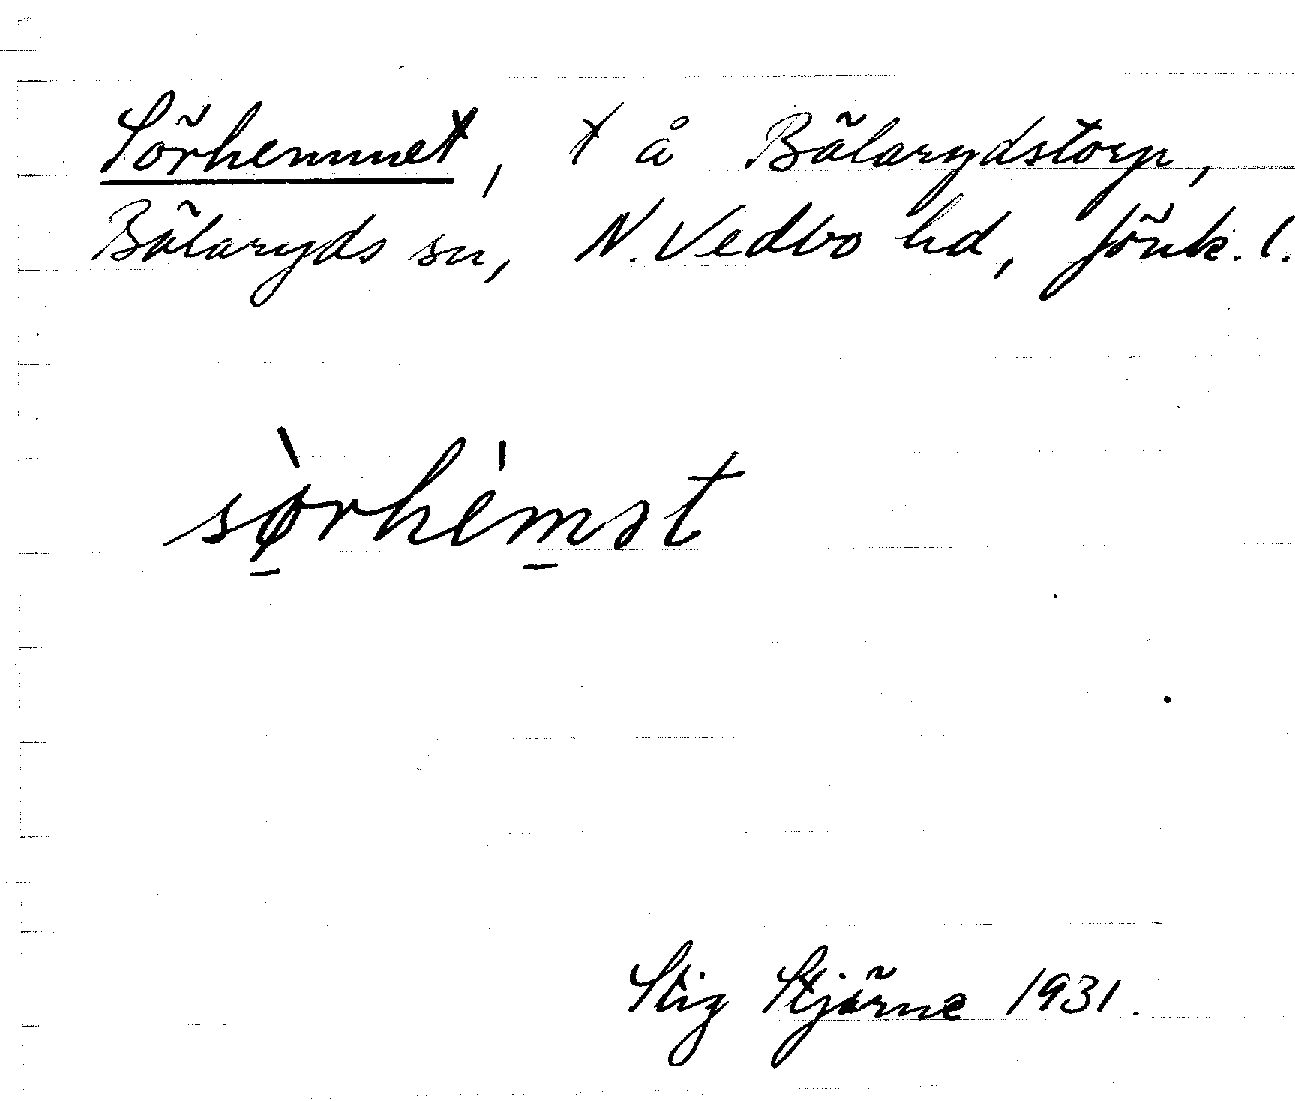 Sörhemmet, t å Bälarydstorp,
Bälaryds sn, N. Vedbo hd, Jönk. l.
sø̀rhémət
Stig Stjärne 1931.